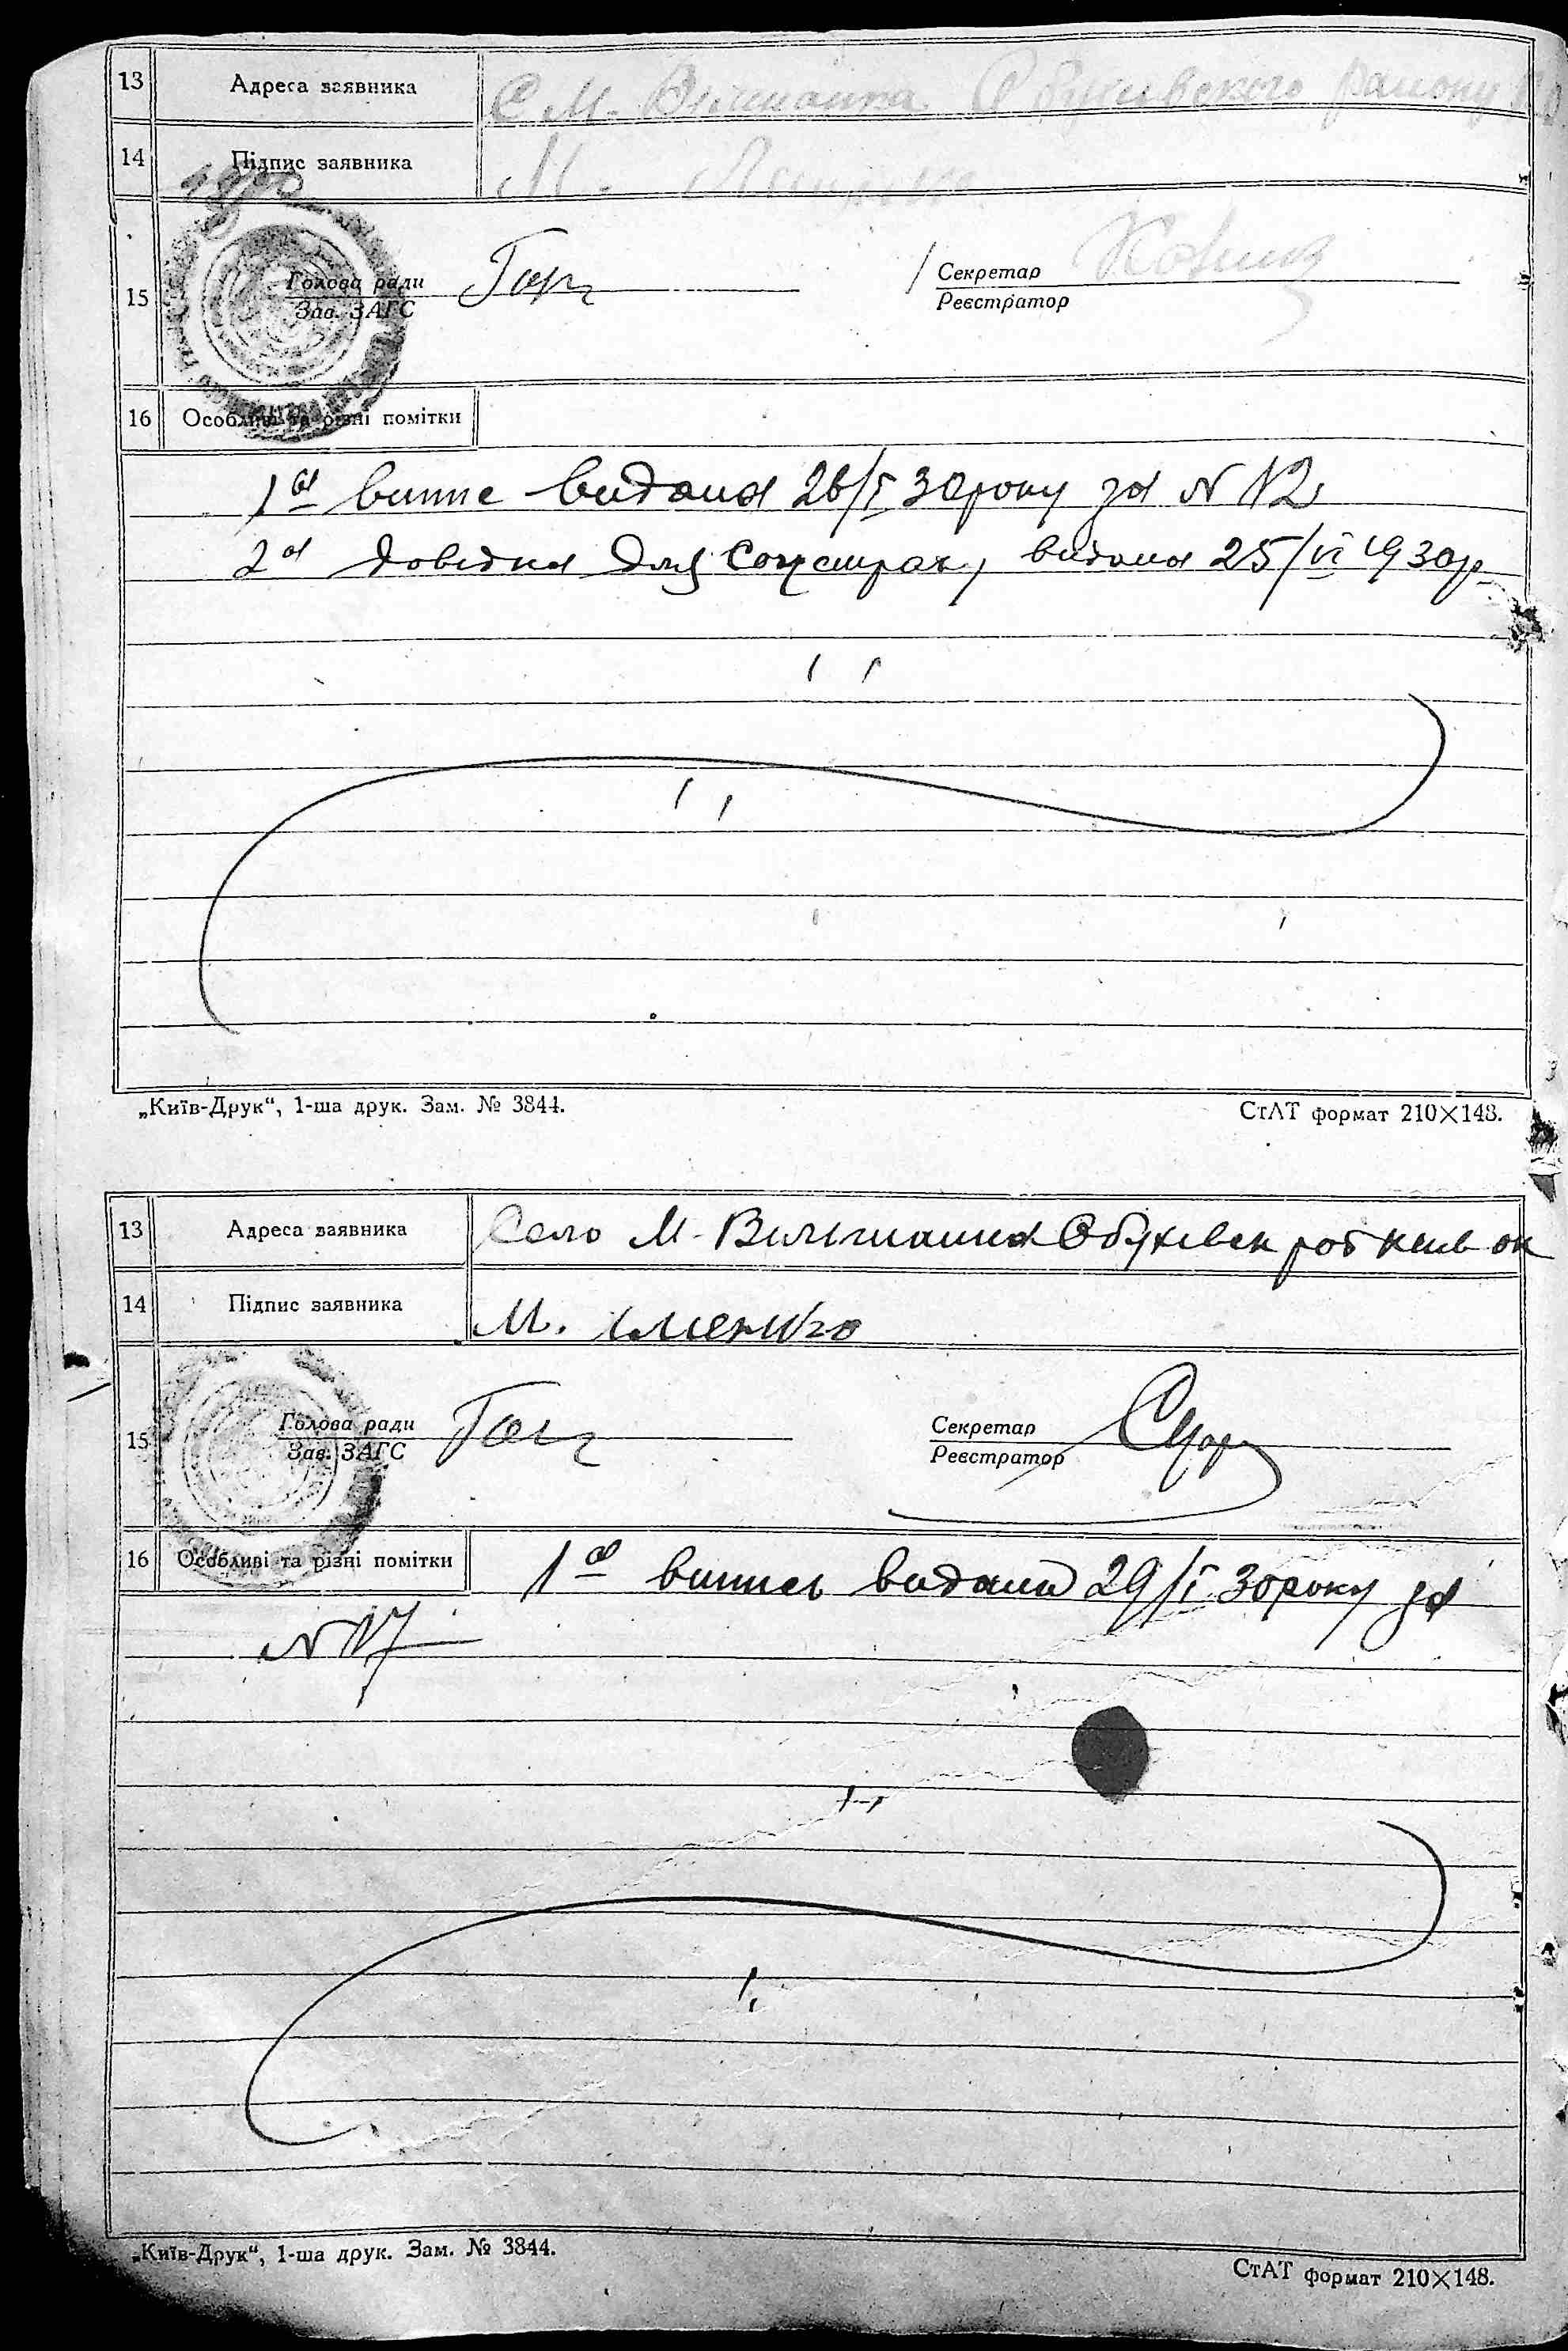 13 Адреса заявника С М. Вильшанка Обухивского району
14 Підпис заявника М.
15 Голова ради Секретар
Зав. ЗАГС Реєстратор
16 Особливі та різні помітки
1а випис видана 26/І 30 року за N 12
2а довідка для Соцстрах, видана 25/VI 1930р.
„Київ-Друк“, 1-ша друк. Зам. № 3844. СтАТ формат 210×148.
13 Адреса заявника Село М. Вильшанка Обухівськ рай київ ок
14 Підпис заявника М.
15 Голова ради Секретар
Зав. ЗАГС Реєстратор
16 Особливі та різні помітки 1а випись видана 29/І 30 року за
N 17
„Київ-Друк“, 1-ша друк. Зам. № 3844. СтАТ формат 210×148.